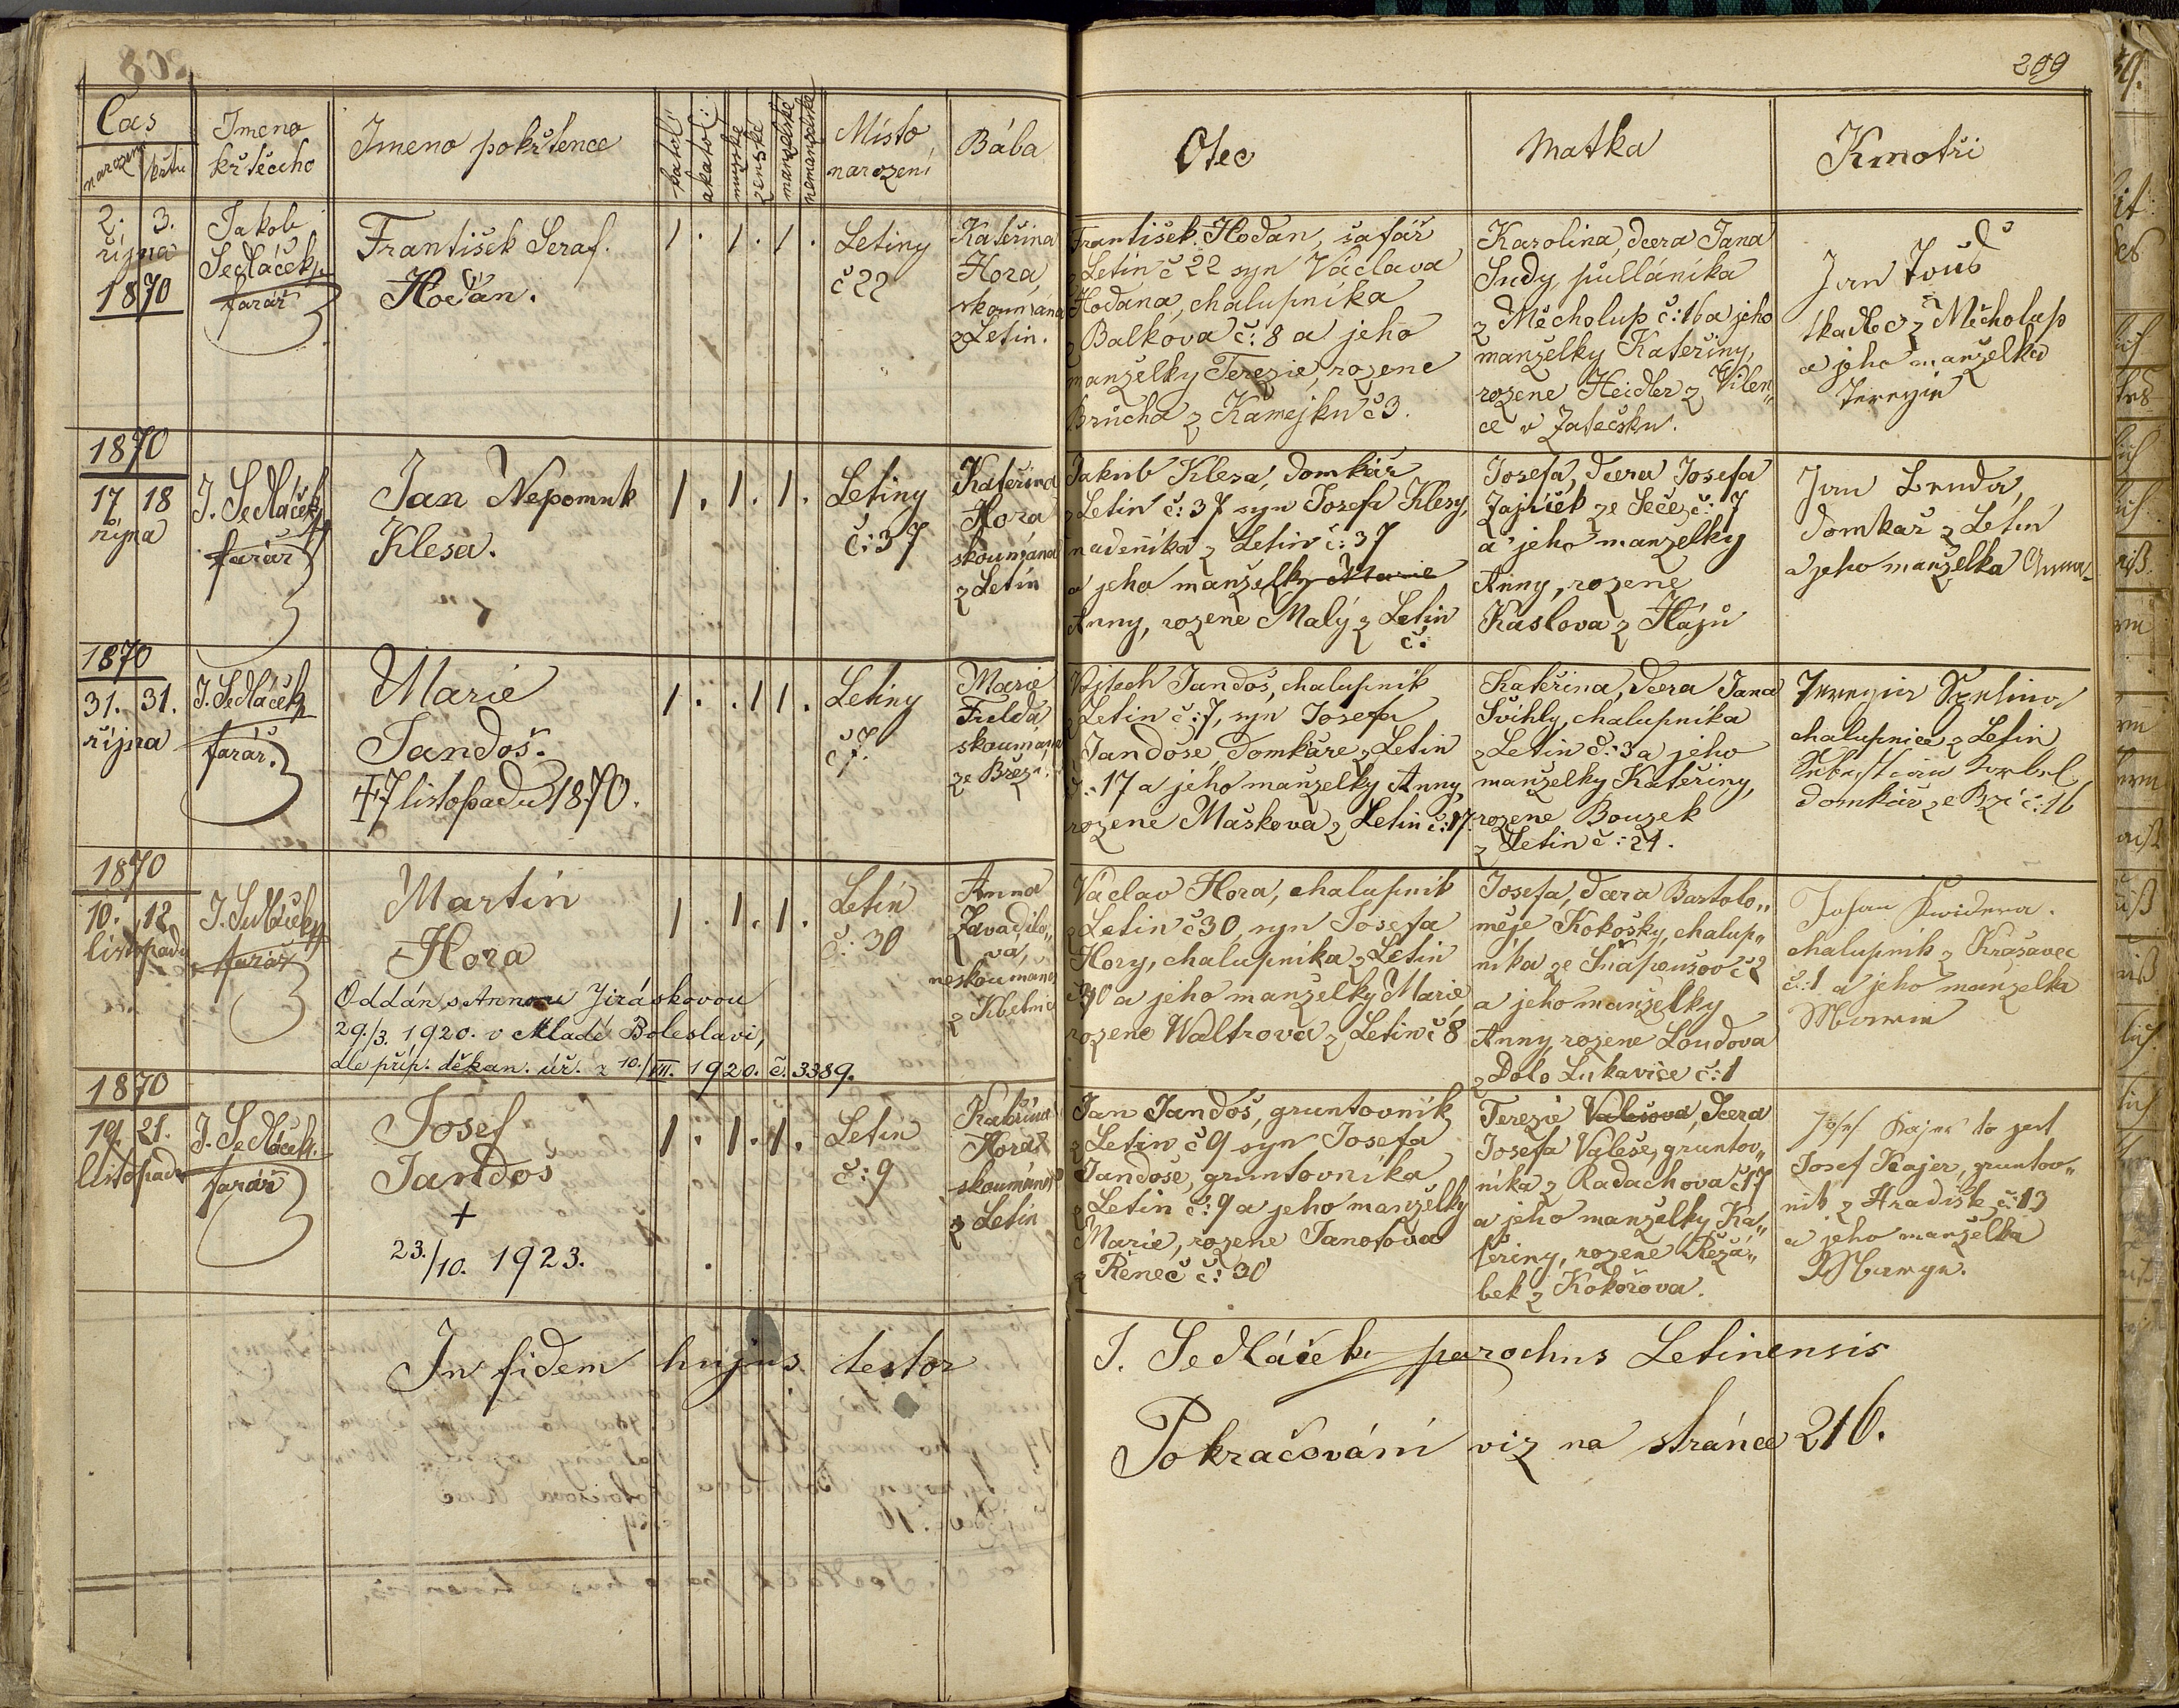 209
Čas
narození křtu
Jmeno
křtěcího
Jmeno pokřtence
katol:
akatol:
mužské
ženské
manželské
nemanželské
Místo
narození
Bába
Otec
Matka
Kmotři
2. 3.
října
1870
Jakob
Sedláček
farář
František Seraf.
Hodan.
1 . 1 . 1 .
Letiny
č 22
Kateřina
Hora,
skoumána
z Letin.
František Hodan, šafář
z Letin č 22 syn Václava
Hodana, chalupníka
z Balkova č: 8 a jeho
manželky Terezie, rozene
Brůcha z Kamejku č 3.
Karolina, dcera Jana
Sudy, půllánika
z Měcholup č: 16 a jeho
manželky Kateřiny,
rozene Heidler z Vilen„
ce v Žatečsku.
Jan
tkadlec z Měcholup
a jeho manželka
Terezie
1870
17 18
října
J. Sedláček
farář
Jan Nepomuk
Klesa.
1 . 1 . 1 .
Letiny
č: 37
Kateřina
Hora
skoumána
z Letin
Jakub Klesa, domkář
z Letin č: 37 syn Josefa Klesy,
nadeníka z Letin č: 37
a jeho manželky Marie
Anny, rozene Malý z Letin
č:
Josefa, dcera Josefa
Zajíček ze Seče č: 7
a jeho manželky
Anny, rozene
Kaslova z Hájů
Jan
domkař z Letin
a jeho manželka Anna
1870
31. 31.
října
J. Sedláček
farář.
Marie
Jandoš.
+ 7 listopadu 1870.
1 . . 1 1 .
Letiny
č 7.
Marie
Frelda
skoumána
ze Březi.
Vojtech Jandoš, chalupník
z Letin č: 7, syn Josefa
Jandoše, domkáře z Letin
č: 17 a jeho manželky Anny,
rozene Maškova z Letin č: 17.
Kateřina, dcera Jana
Švihly, chalupníka
z Letin č: 3 a jeho
manželky Kateřiny,
rozene Bouzek
z Letin č: 21.
Terezie
chalupnice z Letin
domkář ze č: 16
1870
10. 12.
listopadu
J. Sedláček
farář
Martin
Hora
Oddán s Annou Jiráskovou
29./3. 1920. v Mladé Boleslavi,
dle příp. děkan. úř. z 10./VII. 1920. č. 3389.
1 . 1 . 1 .
Letin
č: 30
Anna
Zavadilo„
va,
neskoumaná
z Kbelnic
Václav Hora, chalupník
z Letin č 30, syn Josefa
Hory, chalupníka z Letin
č 30 a jeho manželky Marie,
rozene Waltrova z Letin č 8
Josefa, dcera Bartolo„
měje Kokošky, chalup„
níka ze Šnapoušov č 2
a jeho manželky
Anny, rozene Loudova
z Dolo Lukavice č: 1
Johan
chalupník z Krasavec
č: 1 a jeho manzelka
Marie
1870
19. 21.
listopadu
J. Sedláček
farář
Josef
Jandoš
+
23./10. 1923.
1 . 1 . 1 .
Letin
č: 9
Kateřina
Hora
skoumána
z Letin
Jan Jandoš, gruntovník
z Letin č 9 syn Josefa
Jandoše, gruntovníka
z Letin č: 9 a jeho manželky
Marie, rozene Janotova
z Řeneč č: 30
Terezie Valešova, dcera
Josefa Valeše, gruntov„
níka z Radachova č 17
a jeho manželky Ka„
teřiny, rozene Řezá„
bek z Kokořova.
Josef Kajer to jest
Josef Kajer, gruntov„
nik z Hradiště č: 13
a jeho manželka
In fidem hujus testor
J. Sedláček parochus Letinensis
Pokračování viz na stránce 216.